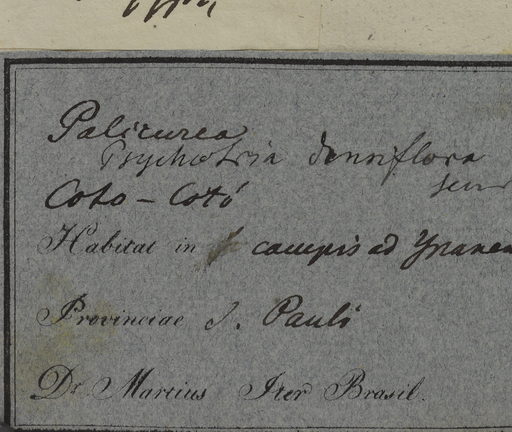 Palicurea
Psychotria densiflora
Coto - Cotó
Habitat in campis ad Ypanem
Provinciae S. Pauli
Dr. Martius Iter Brasil.